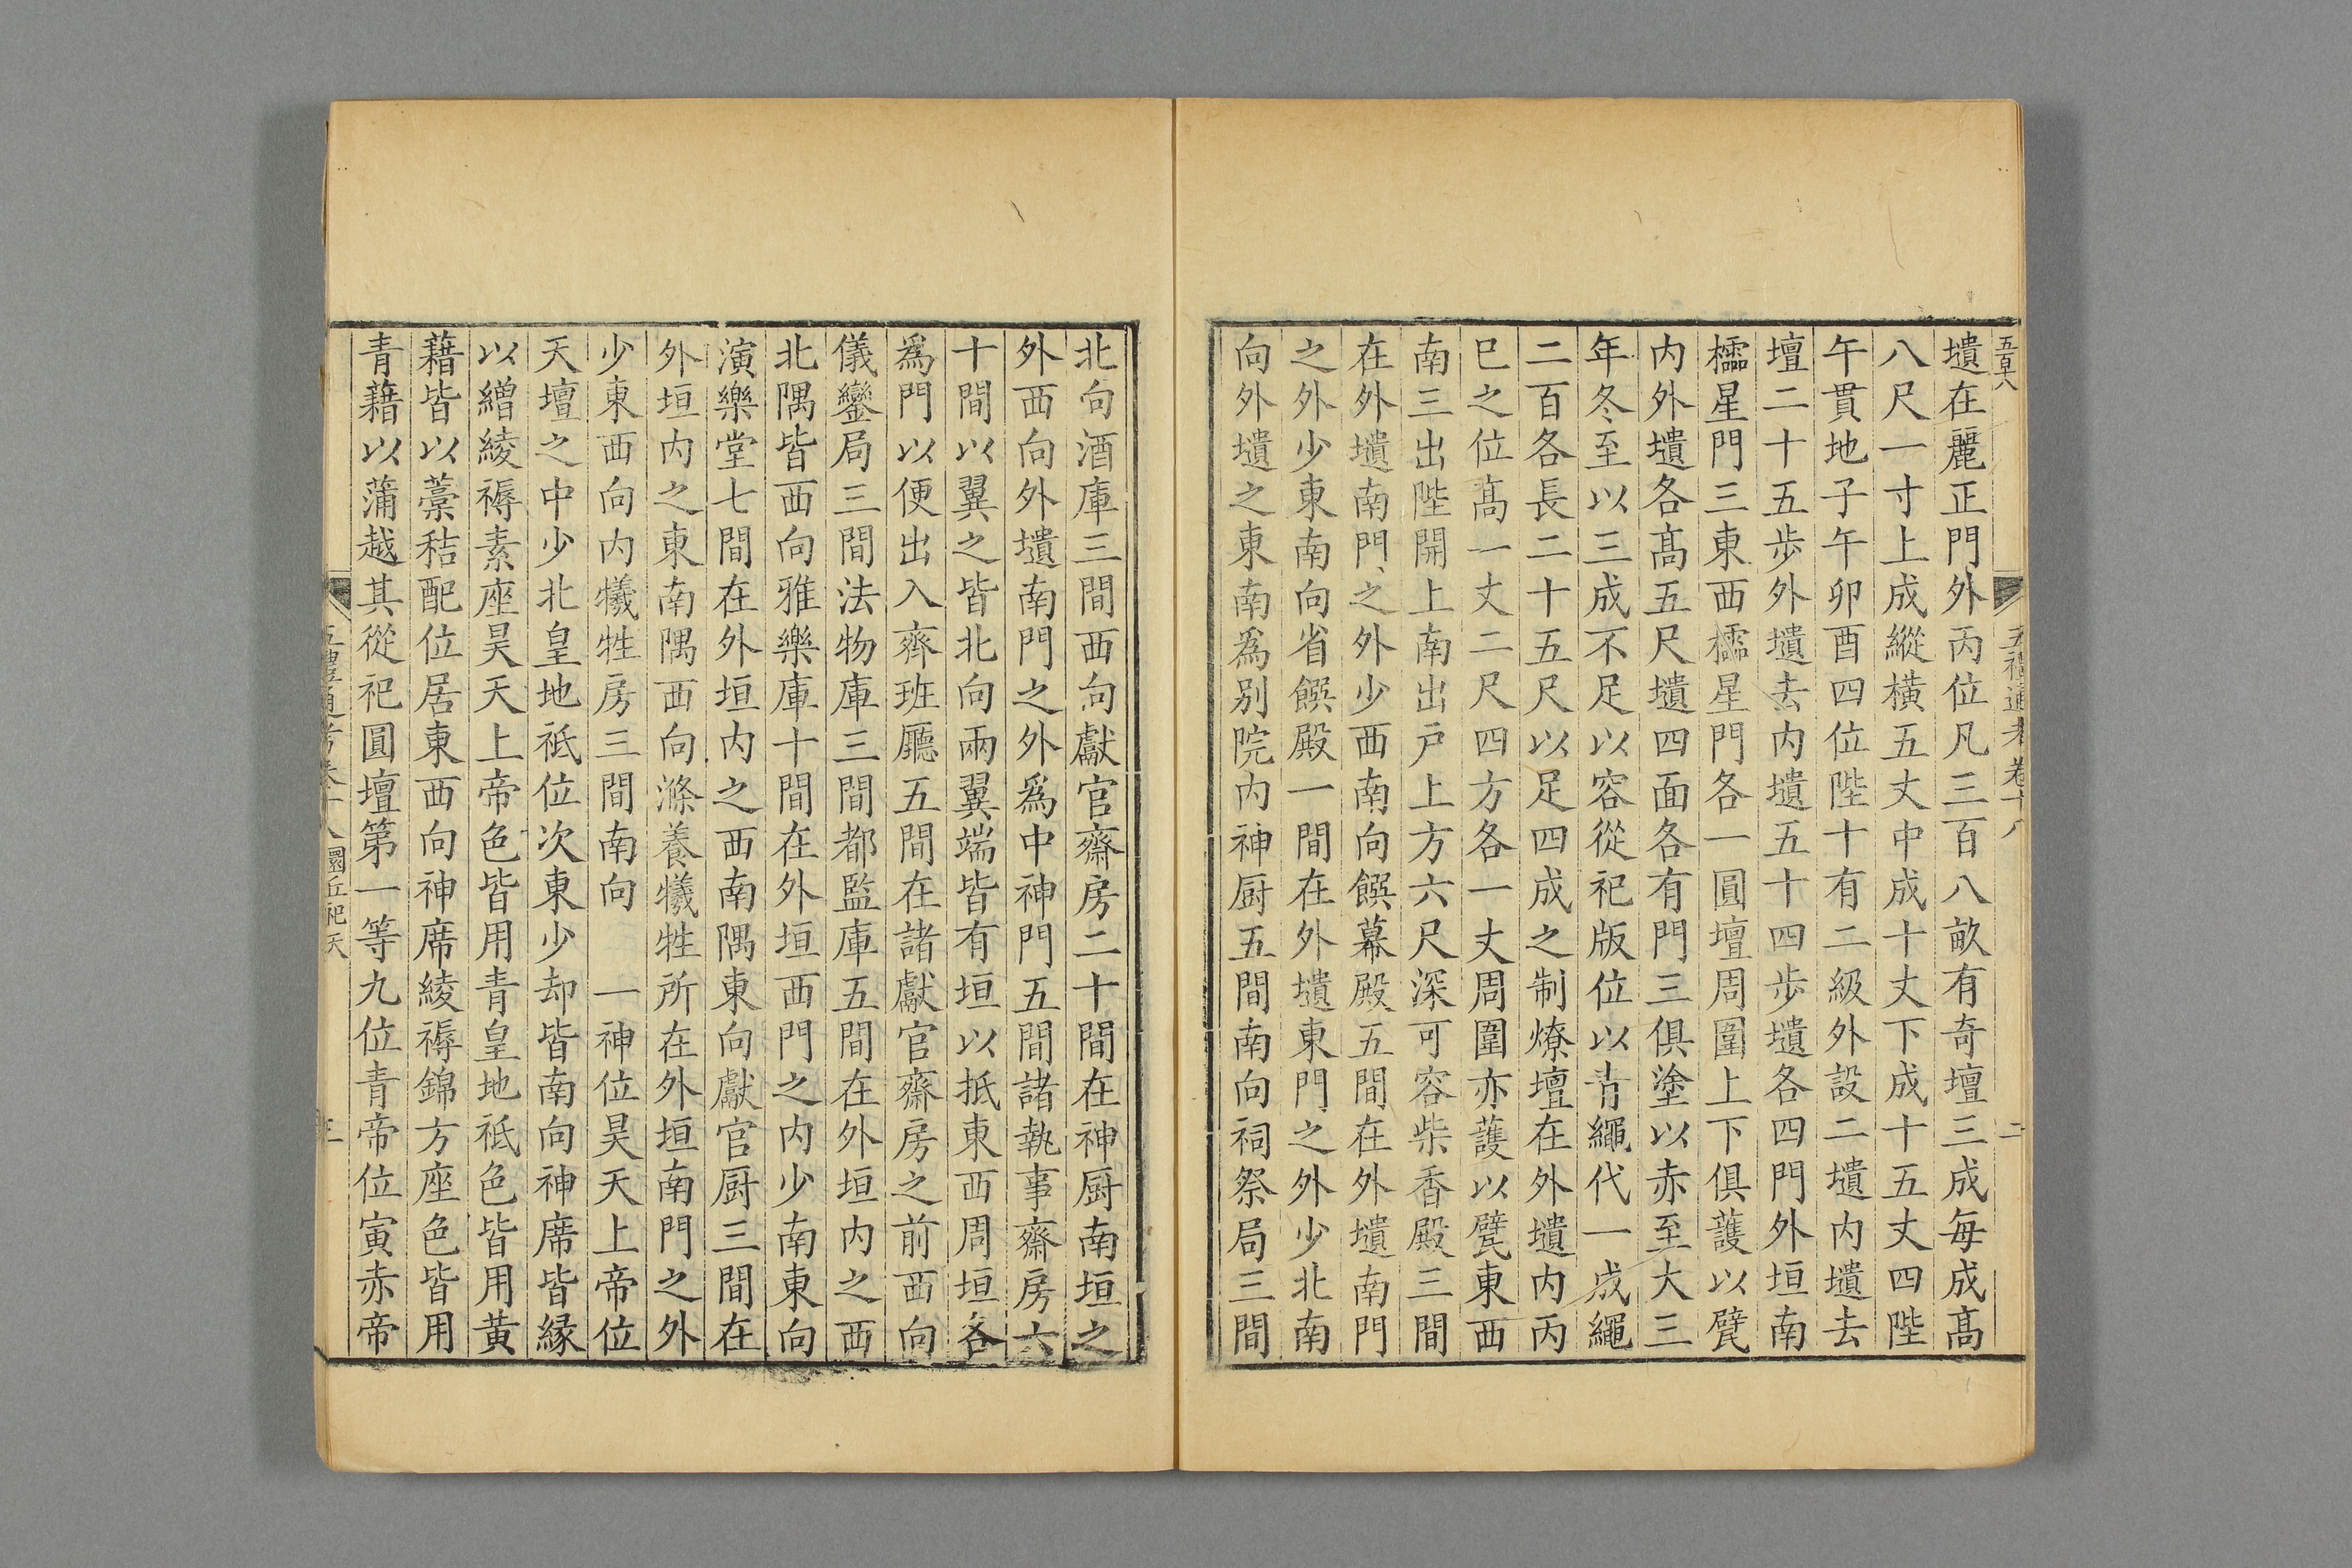 五百六
五禮通考卷十八
二
壝在麗正門外丙位凡三百八畝有奇壇三成每成高
八尺一寸上成縱橫五丈中成十丈下成十五丈四陛
午貫地子午卯酉四位陛十有二級外設二壝内壝去
壇二十五步外壝去内壝五十四步壝各四門外垣南
櫺星門三東西櫺星門各一圓壇周圍上下俱護以甓
内外壝各高五尺壝四面各有門三俱塗以赤至大三
年冬至以三成不足以容從祀版位以青繩代一成繩
二百各長二十五尺以足四成之制燎壇在外壝内丙
巳之位高一丈二尺四方各一丈周圍亦護以甓東西
南三出陛開上南出戸上方六尺深可容柴香殿三間
在外壝南門之外少西南向饌幕殿五間在外壝南門
之外少東南向省饌殿一間在外壝東門之外少北南
向外壝之東南爲别院内神厨五間南向祠祭局三間
北向酒庫三間西向獻官齋房二十間在神厨南垣之
外西向外壝南門之外爲中神門五間諸執事齋房六
十間以翼之皆北向兩翼端皆有垣以抵東西周垣各
爲門以便出入齊班廳五間在諸獻官齋房之前西向
儀鑾局三間法物庫三間都監庫五間在外垣内之西
北隅皆西向雅樂庫十間在外垣西門之内少南東向
演樂堂七間在外垣内之西南隅東向獻官厨三間在
外垣内之東南隅西向滌養犧牲所在外垣南門之外
少東西向内犧牲房三間南向　一神位昊天上帝位
天壇之中少北皇地祇位次東少却皆南向神席皆緣
以繒綾褥素座昊天上帝色皆用青皇地祇色皆用黃
藉皆以藁秸配位居東西向神席綾褥錦方座色皆用
青藉以蒲越其從祀圓壇第一等九位青帝位寅赤帝
五禮通考卷十八　圜丘祀天
三